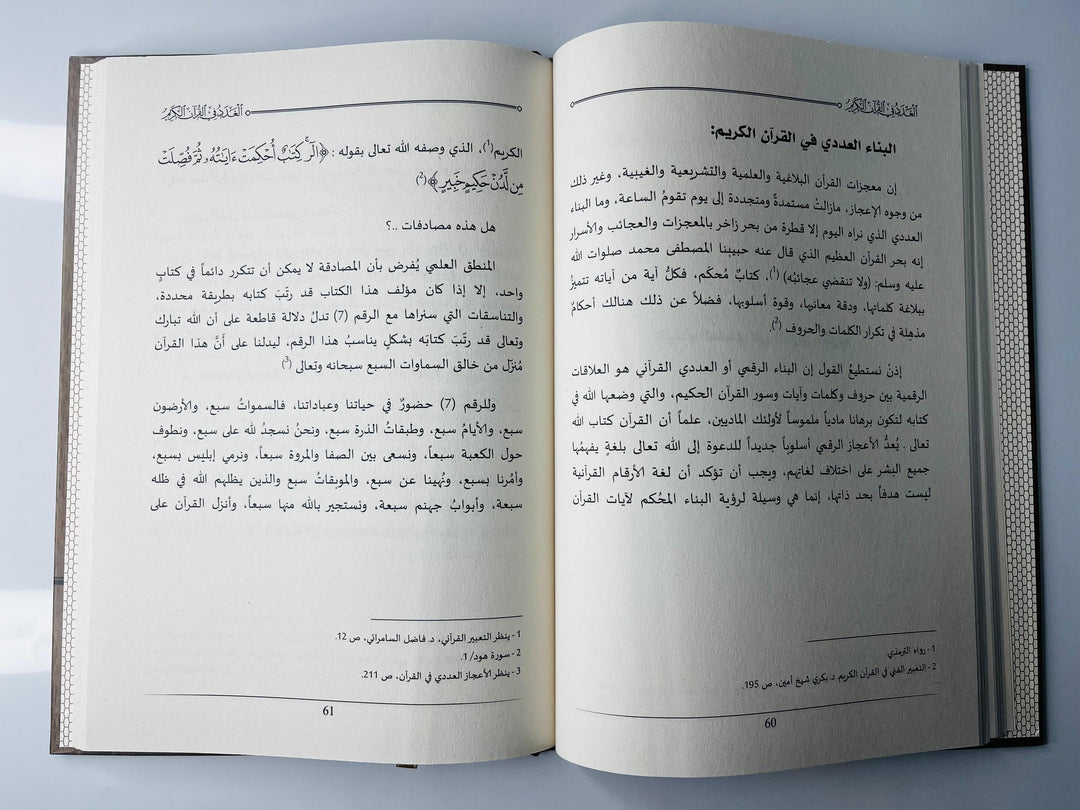 العدد في القرآن الكريم
البناء العددي في القرآن الكريم:
إن معجزات القرآن البلاغية والعلمية والتشريعية والغيبية، وغير ذلك
من وجوه الإعجاز، مازالتْ مستمدةً ومتجددة إلى يوم تقومُ الساعة، وما البناء
العددي الذي نراه اليوم إلا قطرة من بحر زاخر بالمعجزات والعجائب والأسرار
إنه بحر القرآن العظيم الذي قال عنه حبيبنا المصطفى محمد صلوات الله
عليه وسلم: (ولا تنقضي عجائبُه) (1)، كتابٌ مُحكَم، فكلُّ آية من آياته تتميزُ
ببلاغة كلماتها، ودقة معانيها، وقوة أسلوبها، فضلاً عن ذلك هنالك أحكامٌ
مذهلة في تكرار الكلمات والحروف (2).
إذنْ نستطيعُ القول إن البناء الرقمي أو العددي القرآني هو العلاقات
الرقمية بين حروف وكلمات وآيات وسور القرآن الحكيم، والتي وضعها الله في
كتابه لتكون برهانا مادياً ملموساً لأولئك الماديين، علماً أن القرآن كتاب الله
تعالى . يُعدُّ الأعجاز الرقمي أسلوباً جديداً للدعوة إلى الله تعالى بلغةٍ يفهمُها
جميع البشر على اختلاف لغاتهم، ويجب أن تؤكد أن لغة الأرقام القرآنية
ليست هدفاً بحد ذاتها، إنما هي وسيلة لرؤية البناء المحُكم لآيات القرآن
1 - رواه الترمذي.
2 - التعبير الفني في القرآن الكريم، د. بكري شيخ أمين، ص 195.
60
العدد في القرآن الكريم
الكريم(1)، الذي وصفه الله تعالى بقوله : ﴿الٓرۚ كِتَٰبٌ أُحۡكِمَتۡ ءَايَٰتُهُۥ ثُمَّ فُصِّلَتۡ
مِن لَّدُنۡ حَكِيمٍ خَبِيرٍ﴾(2)
هل هذه مصادفات ..؟
المنطق العلمي يُفرض بأن المصادقة لا يمكن أن تتكرر دائماً في كتابٍ
واحد، إلا إذا كان مؤلف هذا الكتاب قد رتَّبَ كتابه بطريقة محددة،
والتناسقات التي سنراها مع الرقم (7) تدلُ دلالة قاطعة على أن الله تبارك
وتعالى قد رتَّبَ كتابَه بشكلٍ يناسبُ هذا الرقم، ليدلنا على أنَّ هذا القرآن
مُنزَل من خالق السماوات السبع سبحانه وتعالى (3)
وللرقم (7) حضورٌ في حياتنا وعباداتنا، فالسمواتُ سبع، والأرضون
سبع، والأيامُ سبع، وطبقاتُ الذرة سبع، ونحنُ نسجدُ لله على سبع، ونطوف
حول الكعبة سبعاً، ونسعى بين الصفا والمروة سبعاً، ونرمي إبليس بسبع،
وأمُرنا بسبع، ونُهينا عن سبع، والموبقاتُ سبع والذين يظلهم الله في ظله
سبعة، وأبوابُ جهنم سبعة، ونستجير بالله منها سبعاً، وأنزل القرآن على
1 - ينظر التعبير القرآني، د. فاضل السامرائي، ص 12.
2 - سورة هود/ 1.
3 - ينظر الأعجاز العددي في القرآن، ص 211.
61